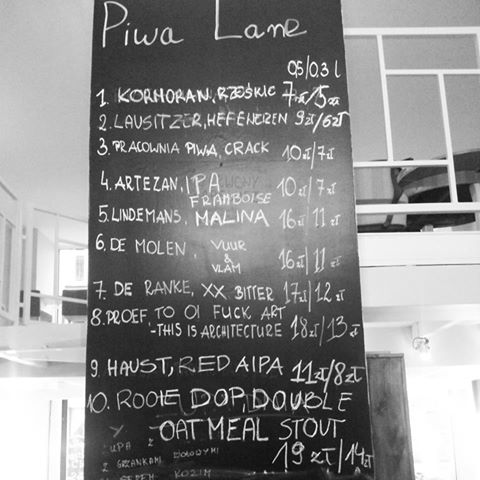 Piwa Lane
0,5/0,3 l
1. KORMORAN, RZEŚKIE 7zł/5zł
2. LAUSITZER, HEFENEREN 9zł/6zł
3. PRACOWNIA PIWA, CRACK 10zł/7zł
4. ARTEZAN, IPA 10zł/7zł
FRAMBOISE
5. LINDEMANS, MALINA 16zł/11zł
6. DE MOLEN, VUUR
&
VLAM 16zł/11zł
7. DE RANKE, XX BITTER 17zł/12zł
8. PROEF TO OI FUCK ART
-THIS IS ARCHITECTURE 18zł/13zł
9. HAUST, RED AIPA 11zł/8zł
10. ROOIE DOP, DOUBLE
OATMEAL STOUT
19zł/14zł
ZUPA Z
Z GRZANKAMI ZIOŁOWYMI
SEREM KOZIM